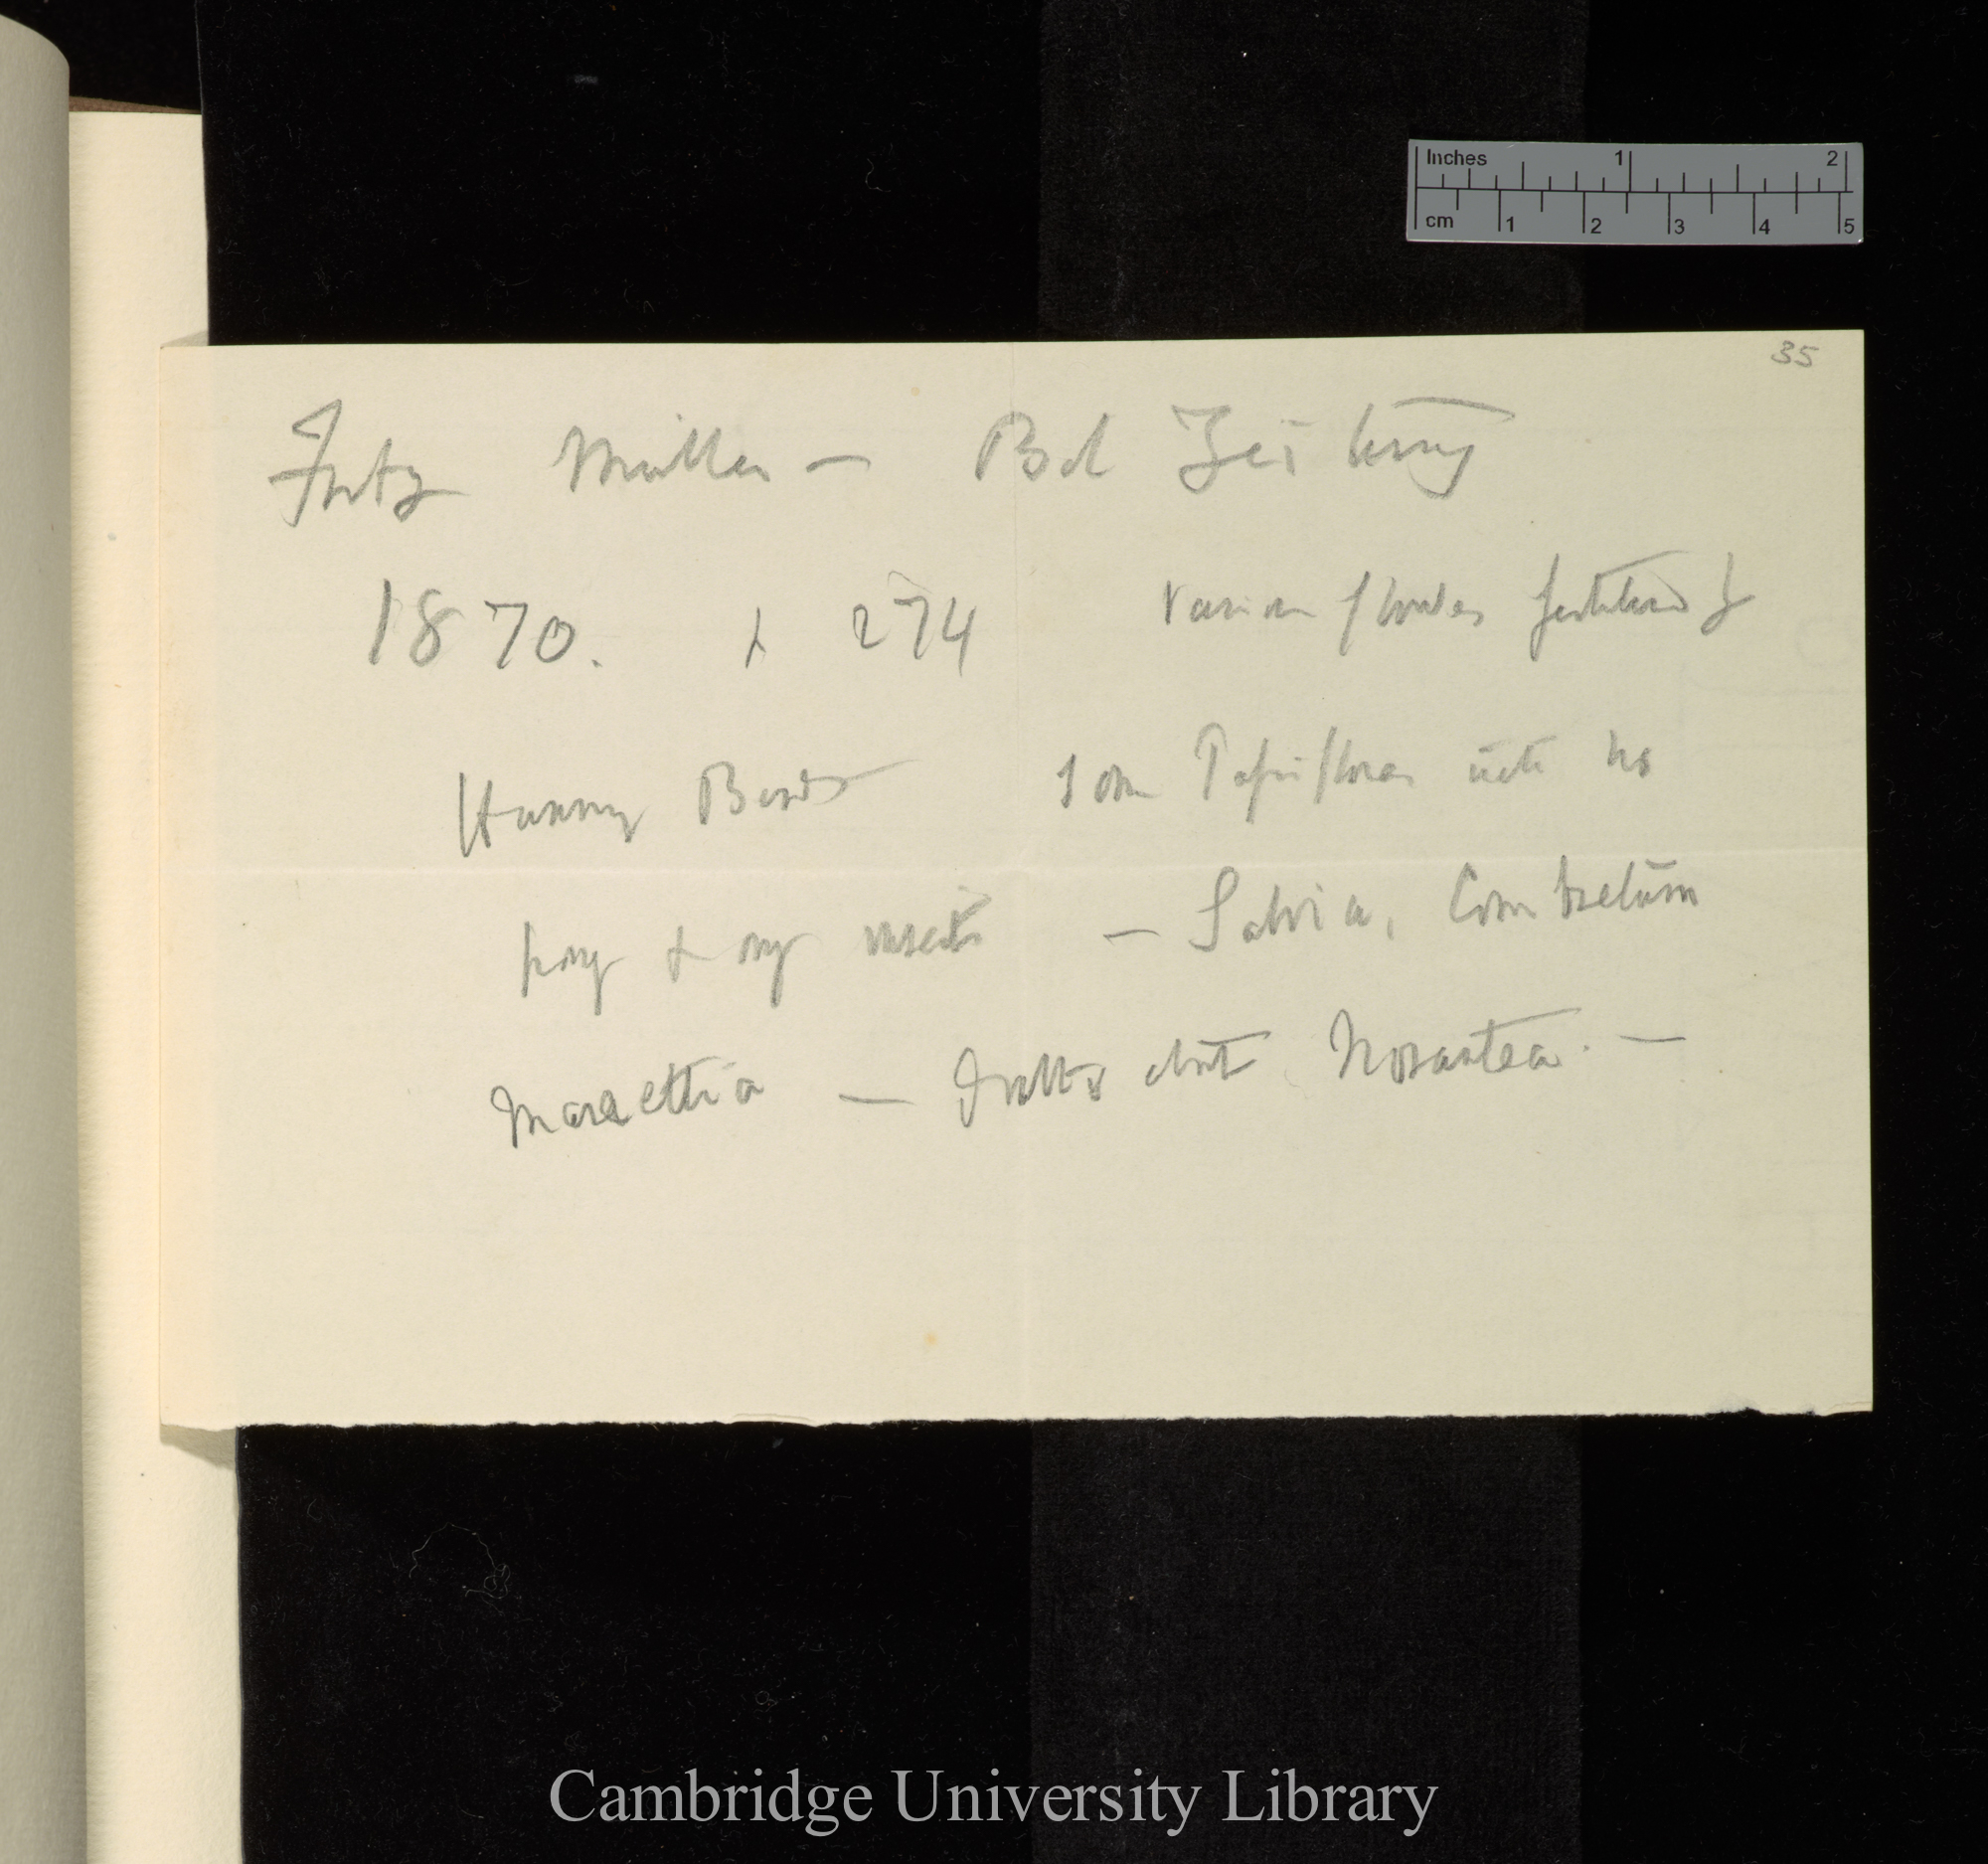 Inches 1 2
cm 1 2 3 4 5
35
Fritz Müller — Bot Zeitung
1870. p 274 various flowers fertilised by
Humming Birds Some Passifloras visit no
& only insects — Salvia, Combretum
— Norantea. —
Cambridge University Library